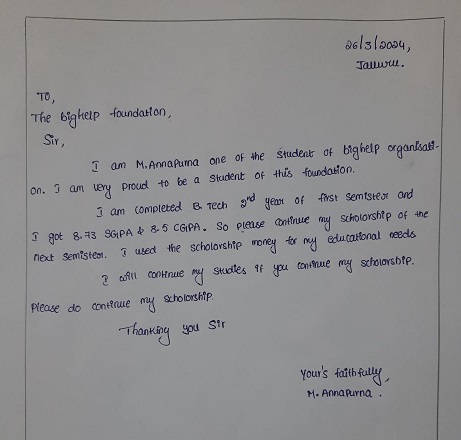 26/3/2024,
Jaluru.
To,
The bighelp foundation,
Sir,
I am M.Annapurna one of the student of bighelp organisati-
on. I am very proud to be a student of this foundation.
I am completed B. Tech 2nd year of first semister and
I got 8.73 SGPA & 8.5 CGPA. So please continue my scholorship of the
next semister. I used the scholorship money for my educational needs
I will continue my studies if you continue my scholorship.
Please do continue my scholorship.
Thanking you Sir
Your's faithfully,
M. Annapurna.